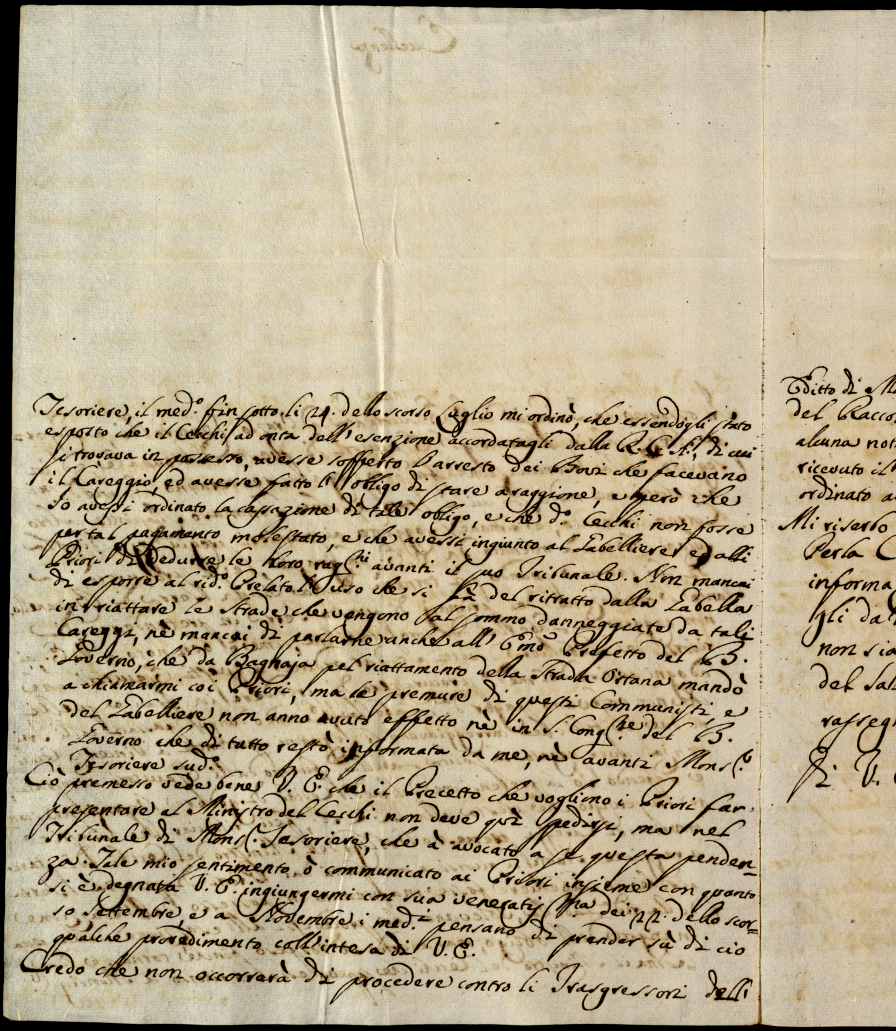 Tesoriere, il med.º fin sotto li 24. dello scorso Luglio mi ordinò, che essendogli stato
esposto che il Cecchi ad onta dell'esenzione accordatagli dalla R. C. A., di cui
si trovava in possesso, avesse sofferto l'arresto dei Bovi che facevano
il Careggio, ed avesse fatto l'obligo di stare a raggione, e però che
Io avessi ordinato la cessazione di tale obligo, e che d.º Cecchi non fosse
per tal pagamento molestato, e che avessi ingiunto al Gabelliere ed alli
Priori di dedurre le loro rag.ni avanti il suo Tribunale. Non mancai
di esporre al rid.º Prelato l'uso che si fà del ritratto dalla Gabella
in riattare le Strade che vengono al sommo danneggiate da tali
Careggi, nè mancai di parlarne anche all' E.mo Prefetto del B.
Governo, che da Bagnaja pel riattamento della Strada Ortana mandò
a chiamarmi coi Priori, ma le premure di questi Communisti, e
del Gabelliere non anno avuto effetto nè in S. Cong.ne del B.
Governo che di tutto restò informata da me, nè avanti Mons.r
Tesoriere sud.º
Ciò premesso vede bene V. E. che il Precetto che vogliono i Priori far
presentare al Ministro del Cecchi non deve quì spedirsi, ma nel
Tribunale di Mons.r Tesoriere, che à avocato a se questa penden=
za. Tale mio sentimento ò communicato ai Priori insieme con quanto
si è degnata V. E. ingiungermi con sua veneratis.ma dei 22. dello scor=
so Settembre, e a Novembre i med.i pensano di prender sù di cio
qualche provedimento coll'intesa di V. E.
Credo che non occorrerà di procedere contro li Trasgressori delli
Editto di
del
alcuna
ricevuto il
ordinato
Mi riserbo
Per la
informa
gli da
non sia
del
rasseg
Di V.